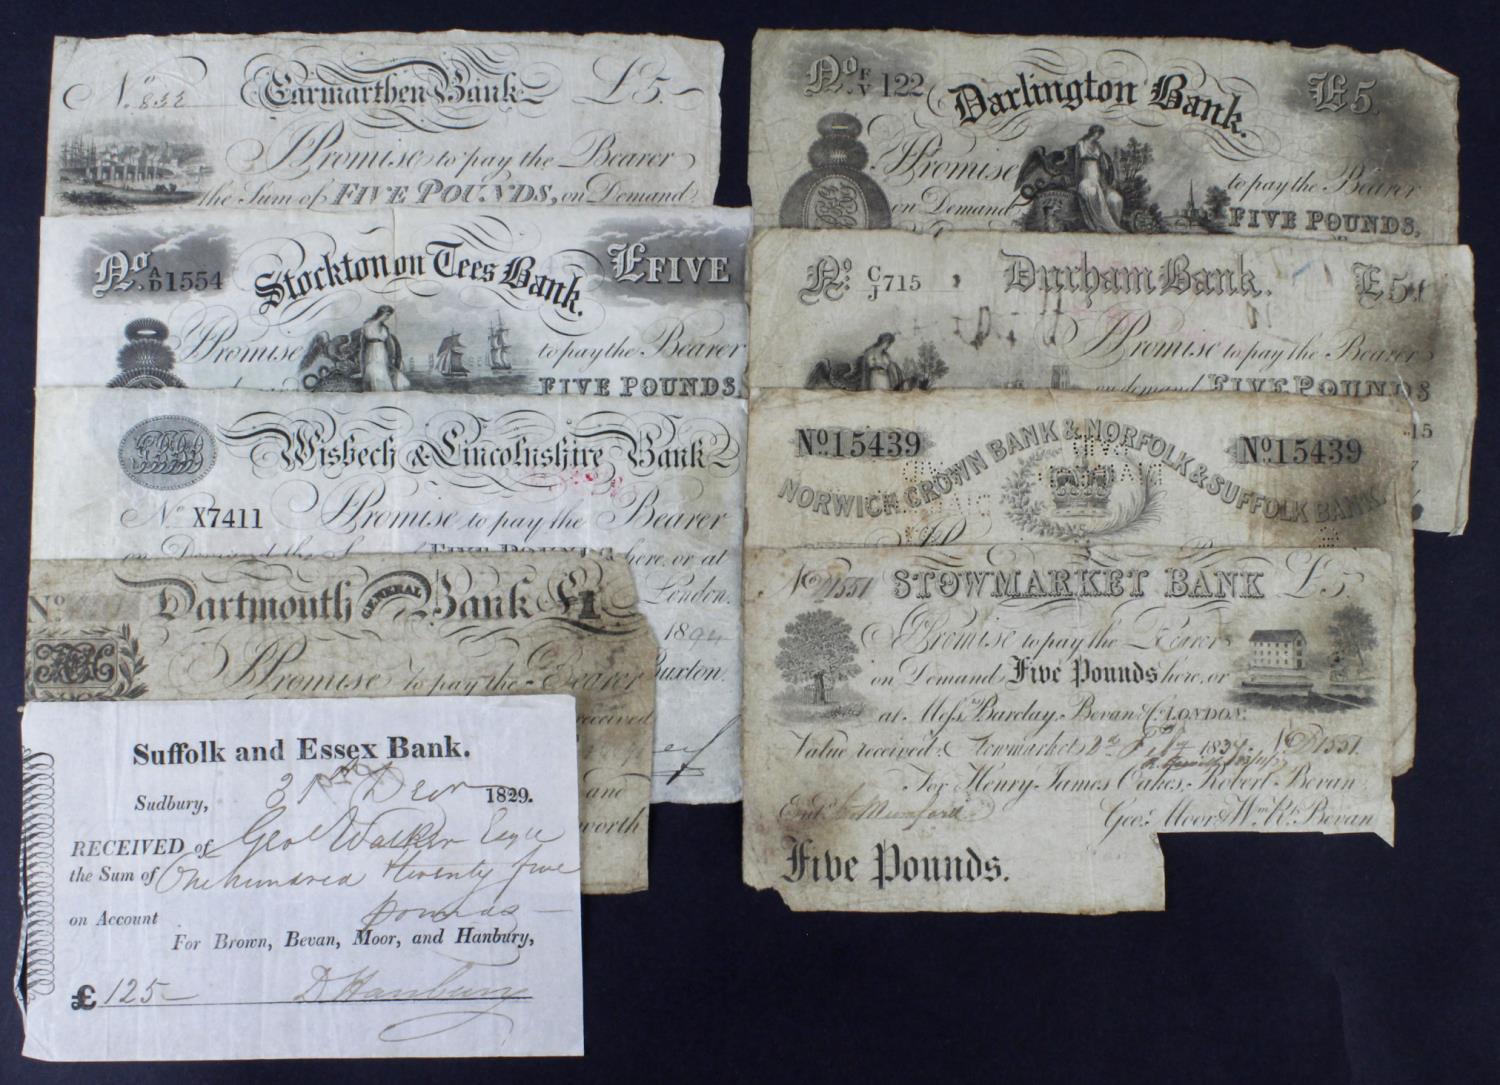 No. 832 Carmarthen Bank £5.
I Promise to pay the Bearer
the Sum of FIVE POUNDS, on Demand
No. A/D 1554 Stockton on Tees Bank. £FIVE
I Promise to pay the Bearer
FIVE POUNDS,
Wisbech & Lincolnshire Bank
No. X7411 I Promise to pay the Bearer
on Demand the Sum of FIVE POUNDS here, or at
London.
1894
Buxton.
No. Dartmouth GENERAL Bank £1
I Promise to pay the Bearer
received
and
worth
Suffolk and Essex Bank.
Sudbury, 31st Decr 1829.
RECEIVED of Geo Walker Esqre
the Sum of One hundred & twenty five
on Account pounds
For Brown, Bevan, Moor, and Hanbury,
£ 125 D Hanbury
No. F/V 122 Darlington Bank. £5.
I Promise to pay the Bearer
on Demand FIVE POUNDS,
No. C/J 715 Durham Bank. £5.
I Promise to pay the Bearer
on demand FIVE POUNDS
15
No. 15439 No. 15439
NORWICH CROWN BANK & NORFOLK & SUFFOLK BANK.
No. D1551 STOWMARKET BANK £5
I Promise to pay the Bearer
on Demand Five Pounds here, or
at Messrs. Barclay, Bevan & Co. LONDON.
Value received Stowmarket 2d Feby 1837. No. D1551
For Henry James Oakes, Robert Bevan
Entd. Mumford Geo. Moor & Wm. R. Bevan
Five Pounds.